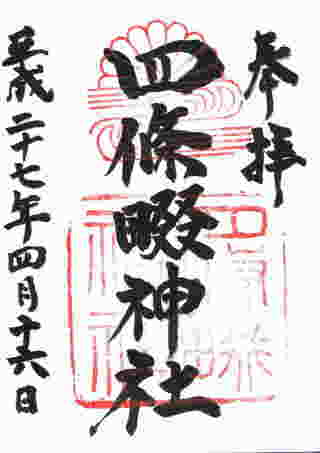 奉拝
四條畷神社
平成二十七年四月十六日